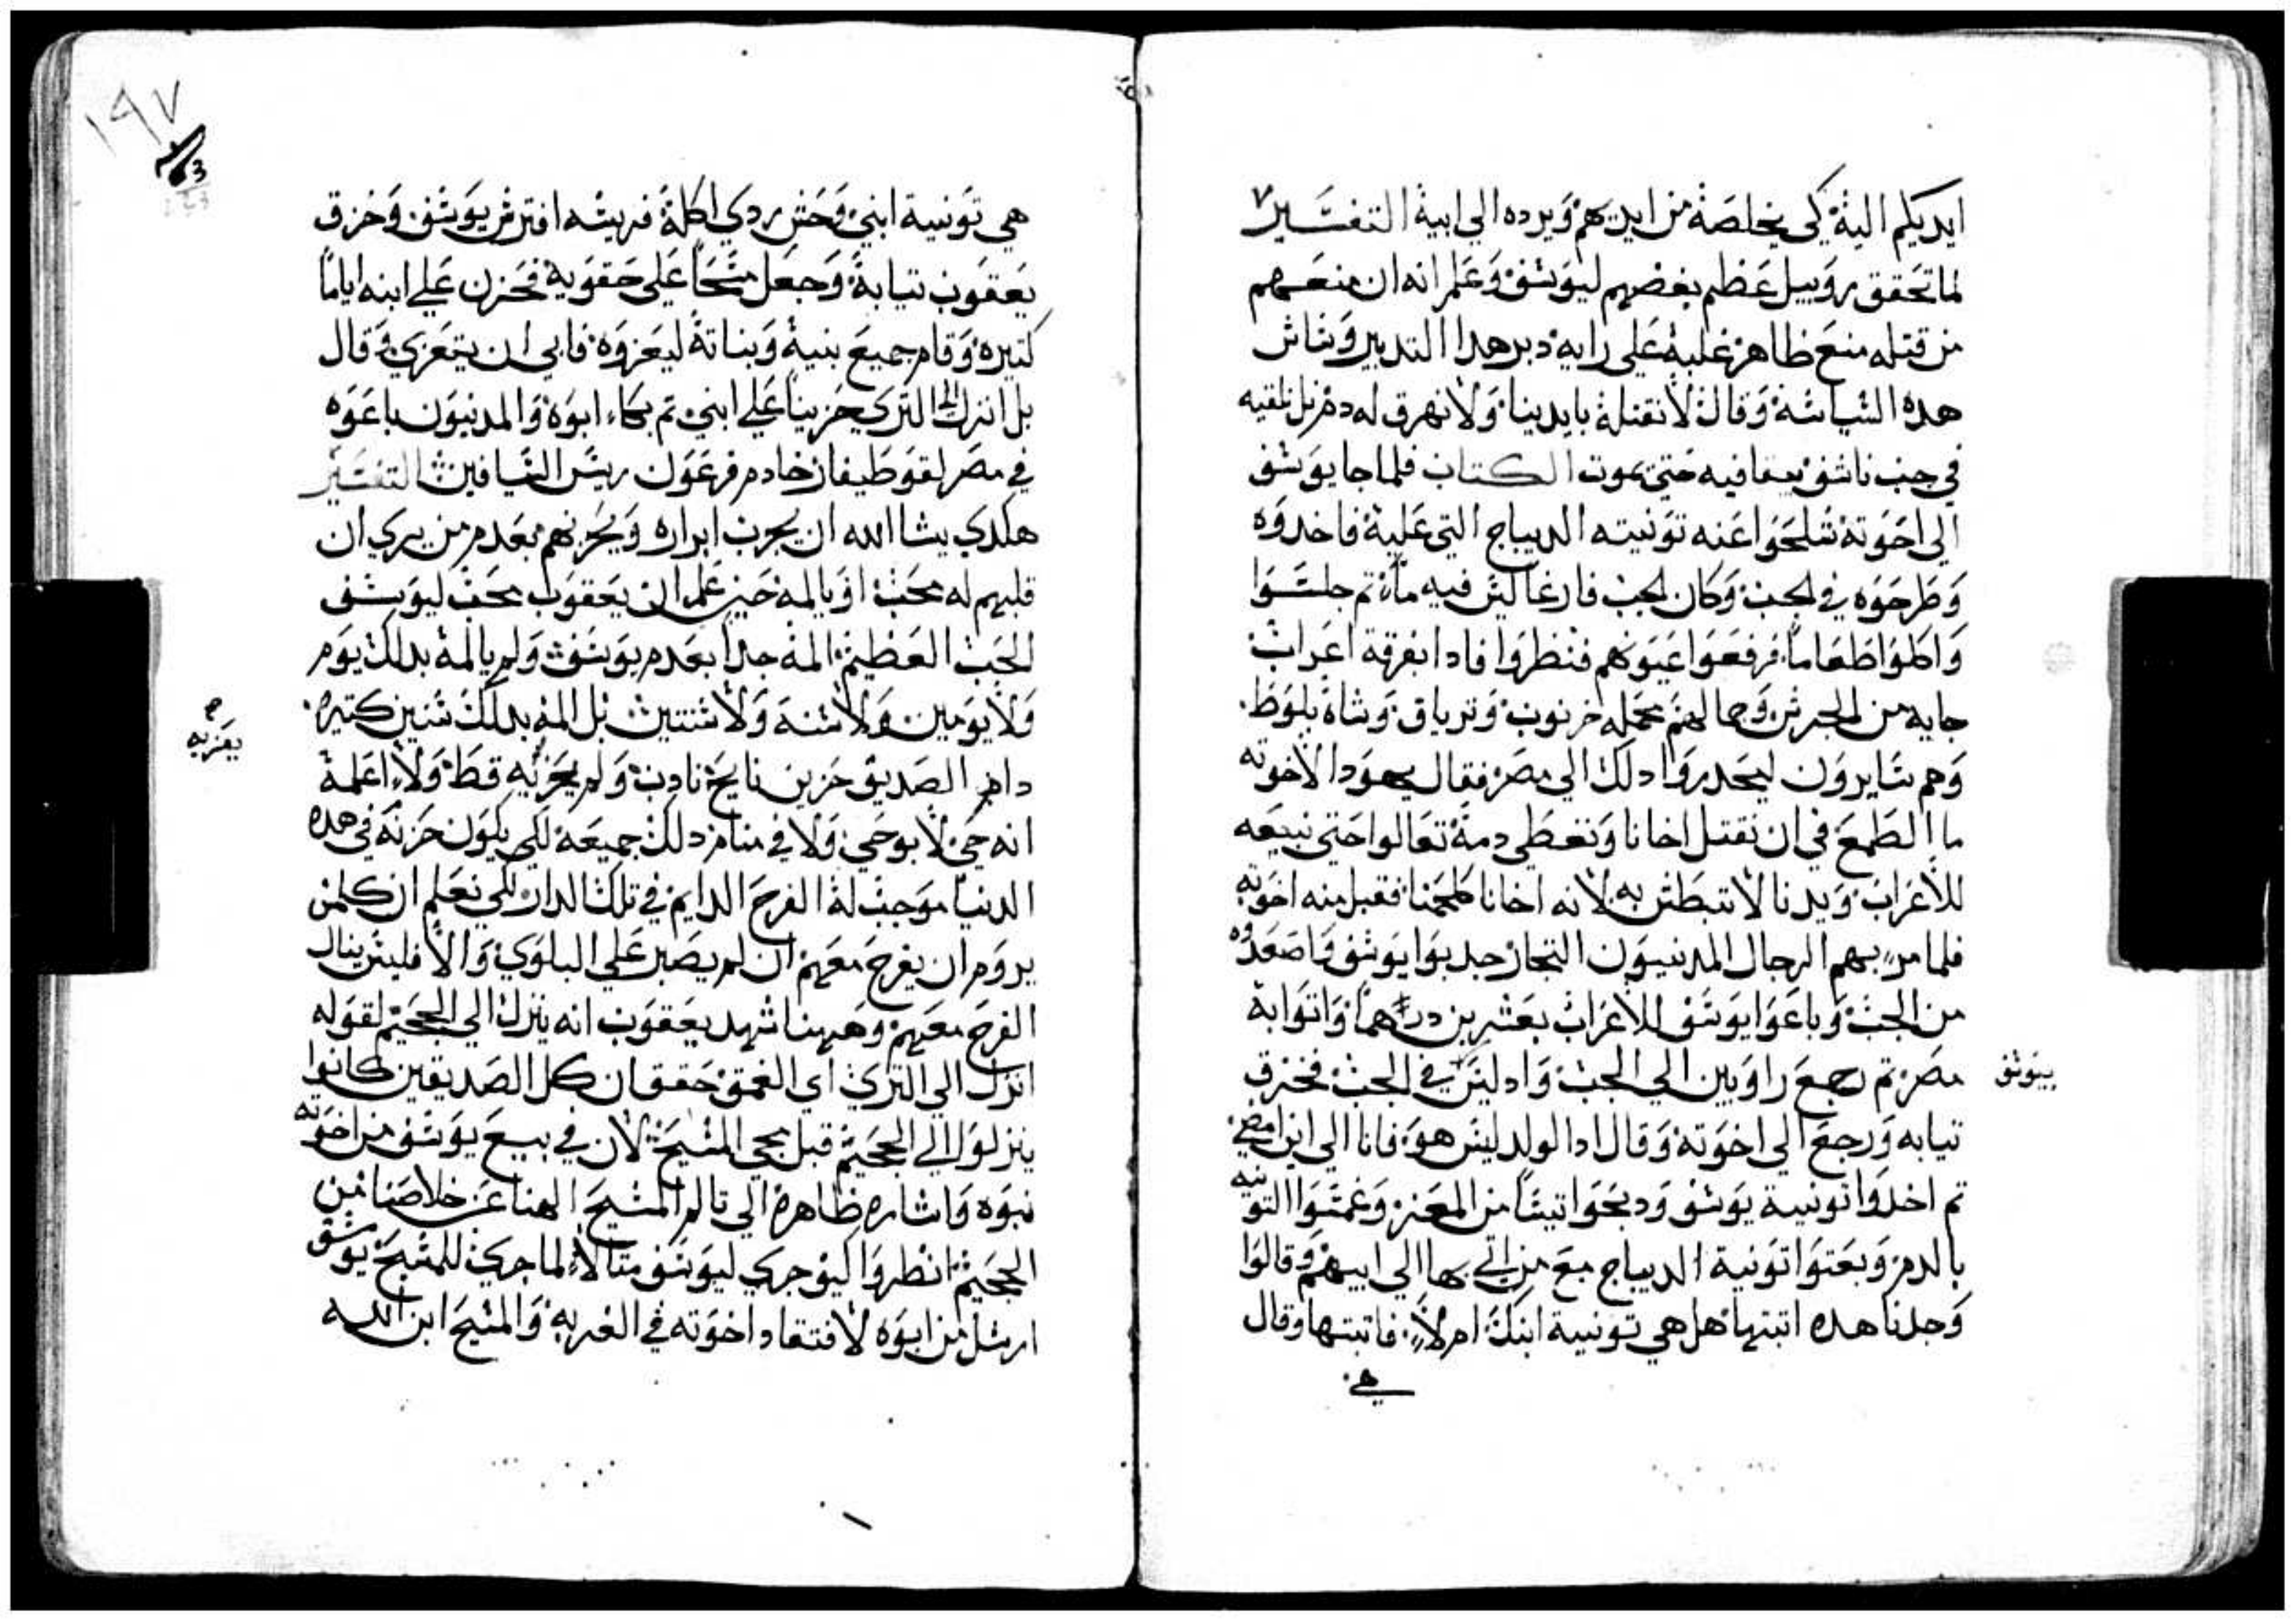 ايديكم اليه كي يخلصه من ايديهم ويرده الي ابيه التفسير
لما تحقق روبيل عظم بغضهم ليوسف وعلم انه ان منعهم
من قتله منع ظاهر غلبه علي رايه دبر هدا التدبير وساس
هده السياسه وقال لا نقتله بايدينا ولا نهرق له دم بل نلقيه
في جب ناشف يبقا فيه حتي يموت الكتاب فلما جا يوسف
الي اخوته شلحوا عنه تونيته الديباج التي عليه فاخدوه
وطرحوه في الجب وكان الجب فارغا ليس فيه مآء تم جلسوا
واكلوا طعاما فرفعوا عيونهم فنظروا فادا بفرقة اعراب
جايه من الجرش وجمالهم محمله خرنوب وترياق وشاة بلوط
وهم سايرون ليحدروا دلك الي مصر فقال يهودا لاخوته
ما الطمع في ان نقتل اخانا ونغطي دمه تعالوا حتي نبيعه
للاعراب ويدنا لا تبطش به لانه اخانا ولحمنا فقبل منه اخوته
فلما مر بهم الرجال المدنيون التجار جدبوا يوسف واصعدوه
من الجب وباعوا يوسف للاعراب بعشرين درهما واتوا به
بيوسف
مصر تم رجع راوبين الي الجب واد ليس في الجب فخرق
تيابه ورجع الي اخوته وقال ادا الولد ليس هو فانا الي اين امضي
تم اخدوا تونية يوسف ودبحوا تيسا من المعز وغمسوا التونيه
بالدم وبعتوا تونية الديباج مع من اتي بها الي ابيهم وقالوا
وجدنا هده اتبتها هل هي تونية ابنك ام لا فاتبتها وقال
هي
١٩٧
هي تونية ابني وحش ردي اكله فريسه افترس يوسف وخرق
يعقوب تيابه وجعل مسحا علي حقويه فحزن علي ابنه اياما
كتيره وقام جميع بنيه وبناته ليعزوه فابي ان يتعزي وقال
بل انزل الي التري حزينا علي ابني تم بكاه ابوه والمدنيون باعوه
في مصر لقوطيفار خادم فرعون ريس السيافين التفسير
هكدي يشا الله ان يجرب ابراره ويحزنهم بعدم من يري ان
قلبهم له محب او يالمه حين علم ان يعقوب محب ليوسف
الحب العظيم المه جدا بعدم يوسف ولم يالمه بدلك يوم
ولا يومين ولا سنه ولا سنتين بل المه بدلك سنين كتيره
يعزيه
دام الصديق حزين نايح نادب ولم يعزيه قط ولا اعلمه
انه حي لا بوحي ولا في منام دلك جميعه لكي يكون حزنه في هده
الدنيا موجب له الفرح الدايم في تلك الدار لكي نعلم ان كلمن
يروم ان يفرح معهم ان لم يصبر علي البلوي والا فليس ينال
الفرح معهم وههنا شهد يعقوب انه ينزل الي الجحيم لقوله
انزل الي التري اي العمق حقق ان كل الصديقين كانوا
ينزلوا الي الجحيم قبل مجي المسيح لان في بيع يوسف من اخوته
نبوه واشاره ظاهره الي تالم المسيح الهنا عن خلاصنا من
الجحيم انظروا اليوم جري ليوسف متالا لما جري للمسيح يوسف
ارسل من ابوه لافتقاد اخوته في الغربه والمسيح ابن الله